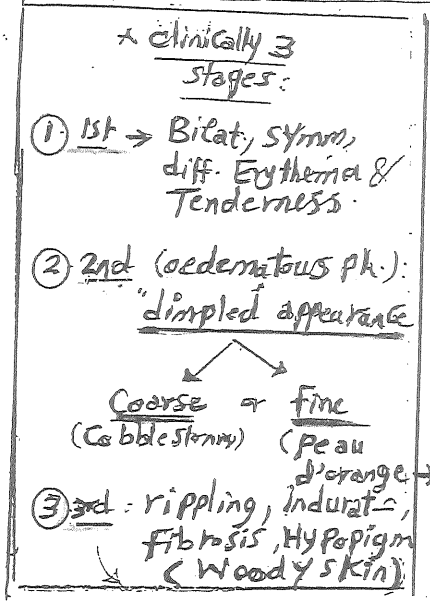 * clinically 3
stages:
① 1st → Bilat, symm,
diff. Erythema &
Tenderness.
② 2nd (oedematous ph.):
"dimpled appearance
Coarse or fine
(Cobblestonny) (peau
d'orange
③ 3rd: rippling, Indurat-,
fibrosis, Hypopigm
(Woody skin)